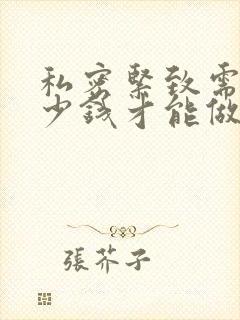 私密緊致需
少錢才能做
張芥子